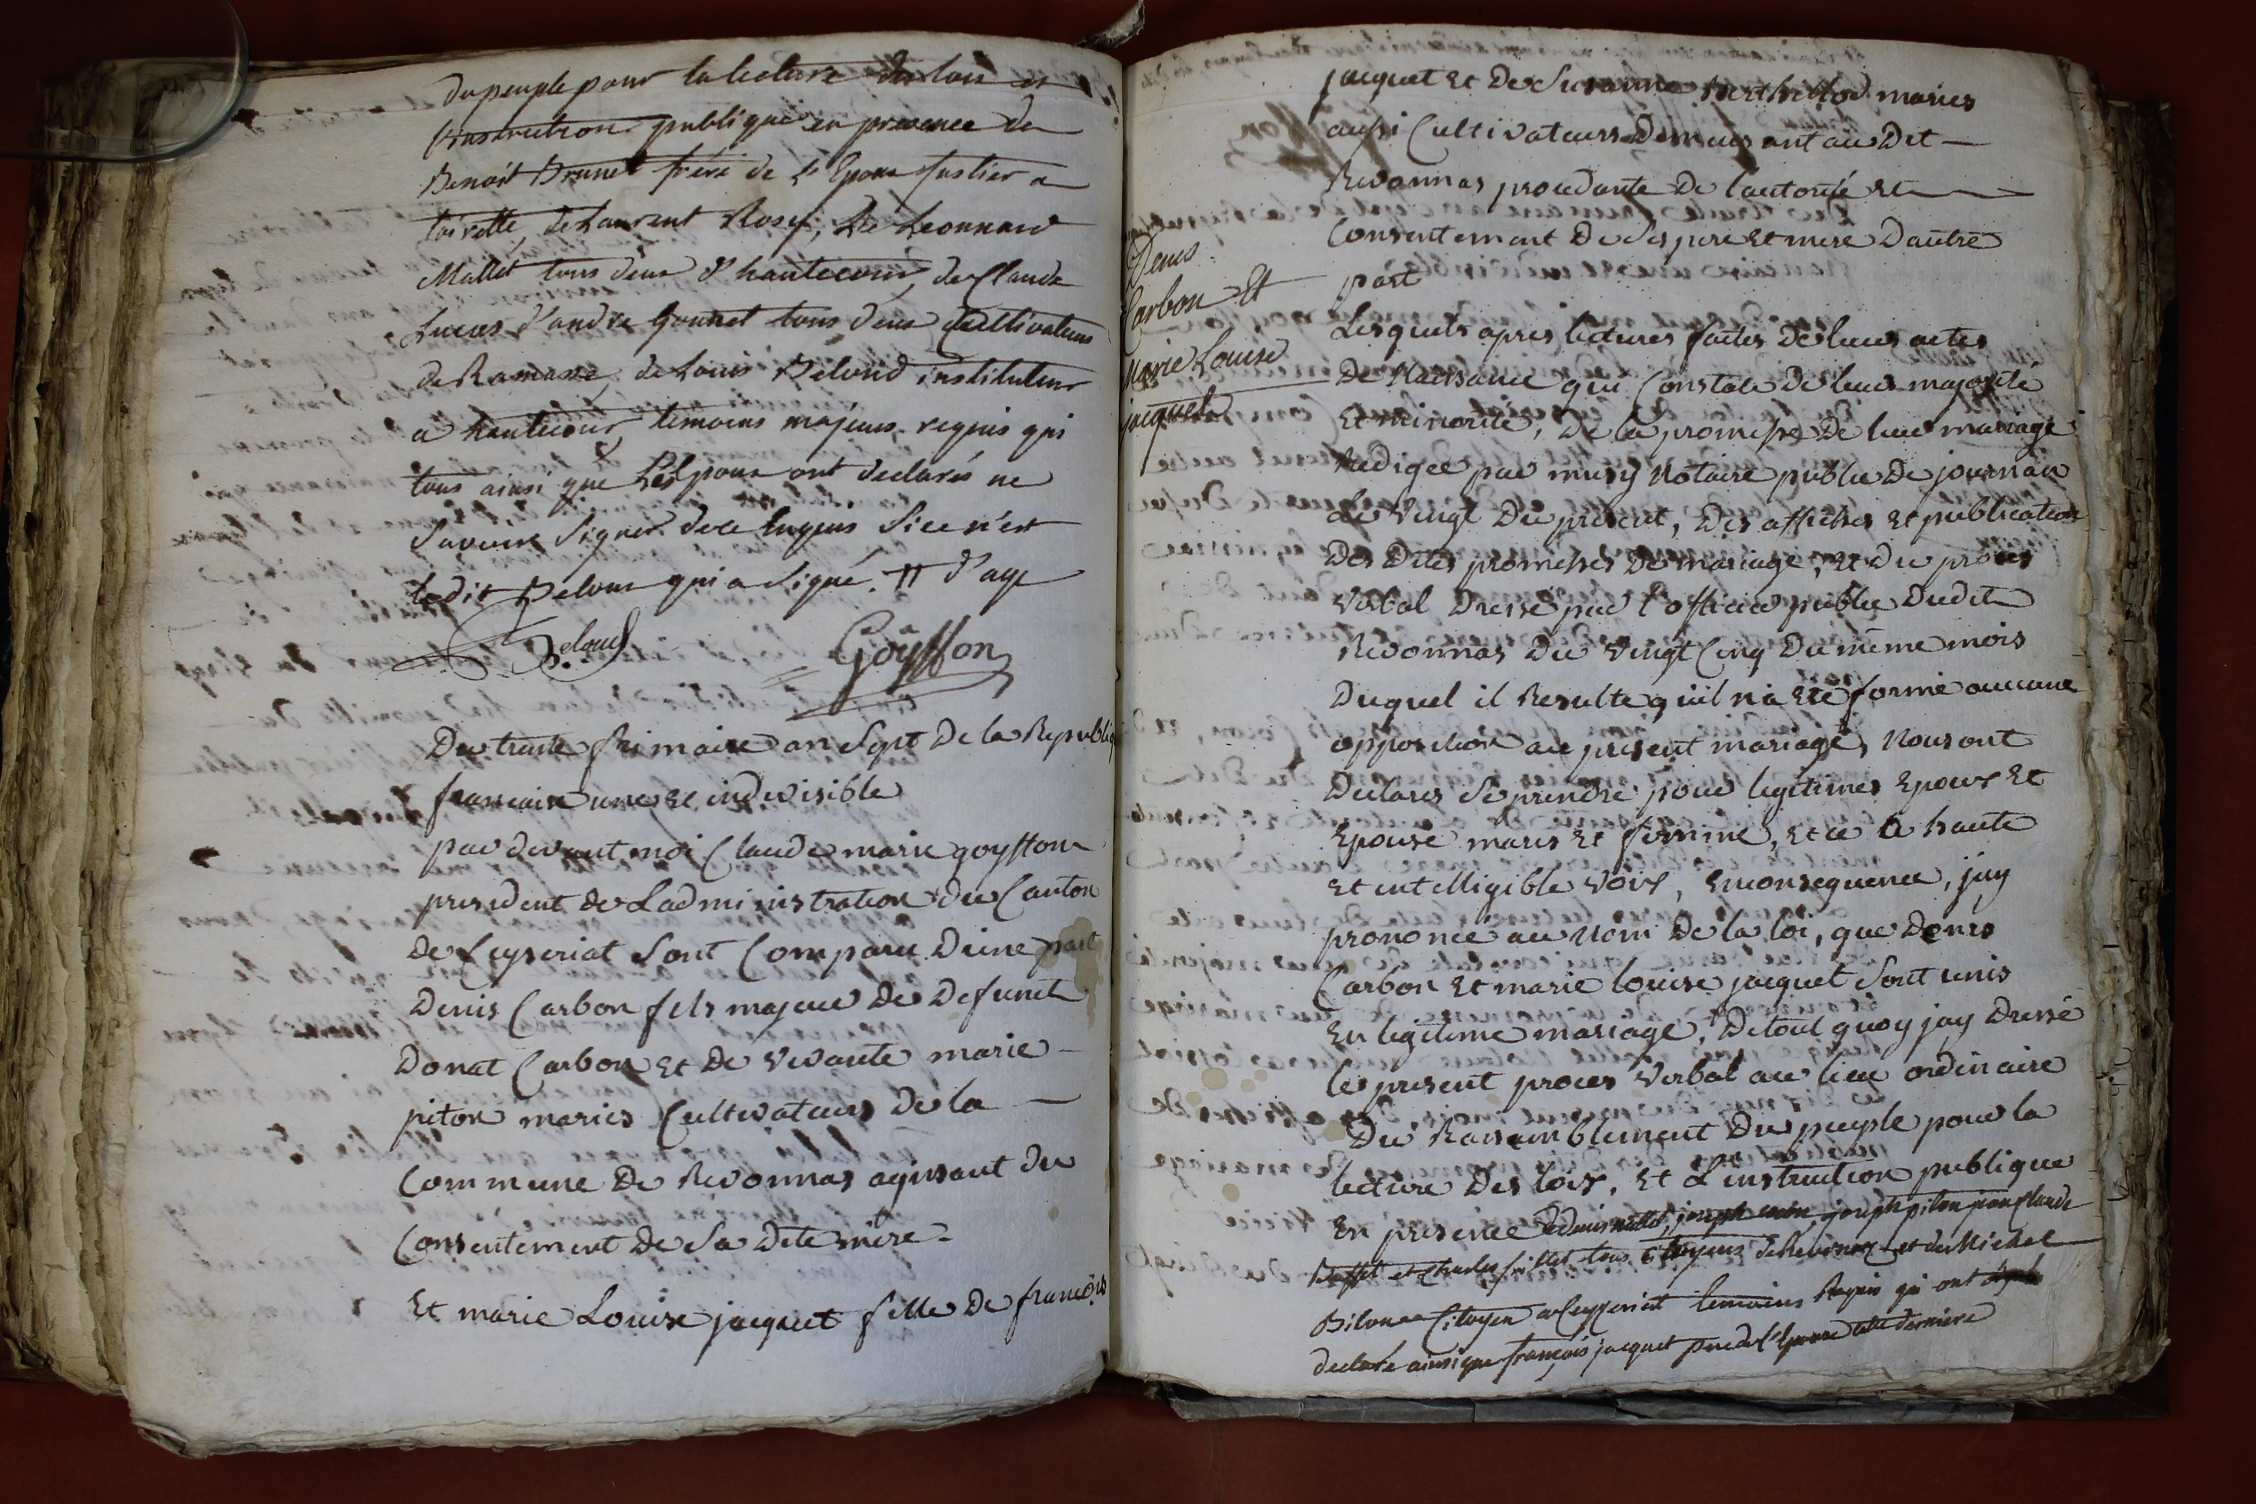 du peuple pour la lecture des lois et
l'instruction publique en presence de
Benoit Brunet frere de l'Epoux fustier a
toirette, de Laurent Rosy, de Leonnard
Mallet tous deux d'hautecour, de Claude
Lucas d'andré Gonnet tous deux Cultivateurs
de Ramasse, de Louis Delond instituteur
a hautecour, temoins majeurs requis qui
tous ainsi que Les Epoux ont declarés ne
Savoir Signer de ce Enquis Si ce n'est
ledit Delond qui a Signé. d'age
Delond
Goyffon
Du trente frimaire an Sept De la Republiq
francaise une et indivisible
par devant moi Claude marie goyffon
president de Ladministration du Canton
de Ceyseriat Sont Comparu Dune part
Denis Carbon fils majeur De Defunct
Donat Carbon Et De vivante marie
piton maries Cultivateurs De la
Commune De Revonnas agissant du
Consentement De Sa Dite mere
Et marie Louise jacquet fille De francois
Denis
Carbon Et
Marie Louise
jacquet
jacquet Et De Susanne Berthillod maries
aussi Cultivateurs Demeurant au Dit
Revonnas procedante De l'autorité Et
Consentement De Ses pere Et mere D'autre
part
Lesquels apres lectures faites De leurs actes
De Naissance qui Constate De leur majorité
Et minorité, De la promesse De leur mariage
Redigee par musy Notaire public De journan
Le vingt Du present, Des affiches Et publication
Des Dites promesses De mariage, Et Du proces
verbal Dressé par l'officier public Dudit
Revonnas Du vingt Cinq Du même mois
Duquel il Resulte qu'il n'a Eté formé aucune
opposition au present mariage, Nous ont
Declarés Se prendre pour legitimes Epoux Et
Epouse maris Et femme, Et ce a haute
Et intelligible voix, Enconsequence, jay
prononcé au Nom De la loi, que Denis
Carbon Et marie louise jacquet Sont unis
En legitime mariage, De tout quoy jay Dressé
le present proces verbal au lieu ordinaire
Du Rassemblement Du peuple pour la
lecture Des loix, Et L'instruction publique
En presence de denis mallet, joseph joseph piton jean Claude
et Charles tous Citoyens de Revonnas et de Michel
Citoyen a Ceyzeriat temoins Requis qui ont
declaré ainsi que françois jacquet pere de l'Epouse cette derniere